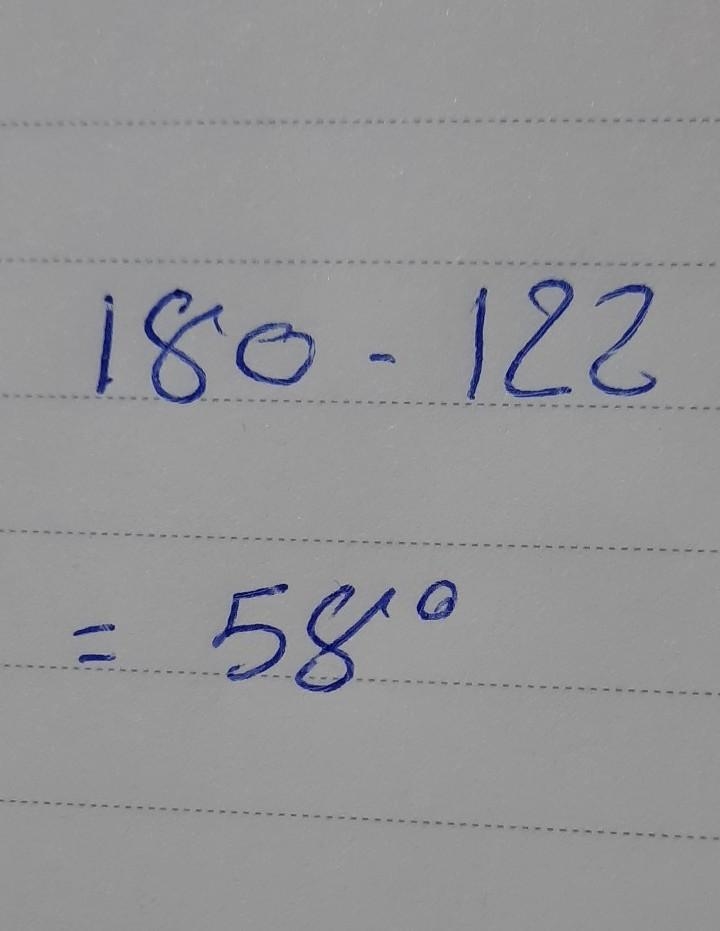 180 - 122
= 58°